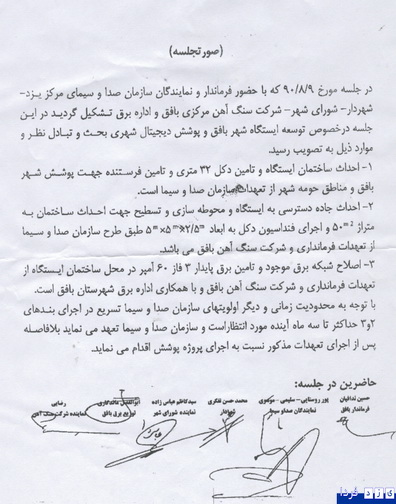 (صورتجلسه)
در جلسه مورخ ۹۰/۸/۹ که با حضور فرماندار و نمایندگان سازمان صدا و سیمای مرکز یزد-
شهردار- شورای شهر- شرکت سنگ آهن مرکزی بافق و اداره برق تشکیل گردید در این
جلسه درخصوص توسعه ایستگاه شهر بافق و پوشش دیجیتال شهری بحث و تبادل نظر و
موارد ذیل به تصویب رسید.
۱- احداث ساختمان ایستگاه و تامین دکل ۳۲ متری و تامین فرستنده جهت پوشش شهر
بافق و مناطق حومه شهر از تعهدات سازمان صدا و سیما است.
۲- احداث جاده دسترسی به ایستگاه و محوطه سازی و تسطیح جهت احداث ساختمان به
متراژ ۵۰m² و اجرای فنداسیون دکل به ابعاد ۵m×۵m×۲/۵m طبق طرح سازمان صدا و سیما
از تعهدات فرمانداری و شرکت سنگ آهن بافق می باشد.
۳- اصلاح شبکه برق موجود و تامین برق پایدار ۳ فاز ۶۰ آمپر در محل ساختمان ایستگاه از
تعهدات فرمانداری و شرکت سنگ آهن بافق و با همکاری اداره برق شهرستان بافق است.
با توجه به محدودیت زمانی و دیگر اولویتهای سازمان صدا و سیما تسریع در اجرای بندهای
۲و۳ حداکثر تا سه ماه آینده مورد انتظار است و سازمان صدا و سیما تعهد می نماید بلافاصله
پس از اجرای تعهدات مذکور نسبت به اجرای پروژه پوشش اقدام می نماید.
حاضرین در جلسه:
حسین ندافیان پور روستایی- سلیمی- موسوی محمد حسن تفکری سیدکاظم عباس زاده ماندگاری رضایی
فرماندار بافق نمایندگان صدا و سیما شهردار نماینده شورای شهر توزیع برق بافق نماینده شرکت سنگ آهن
یزد فردا